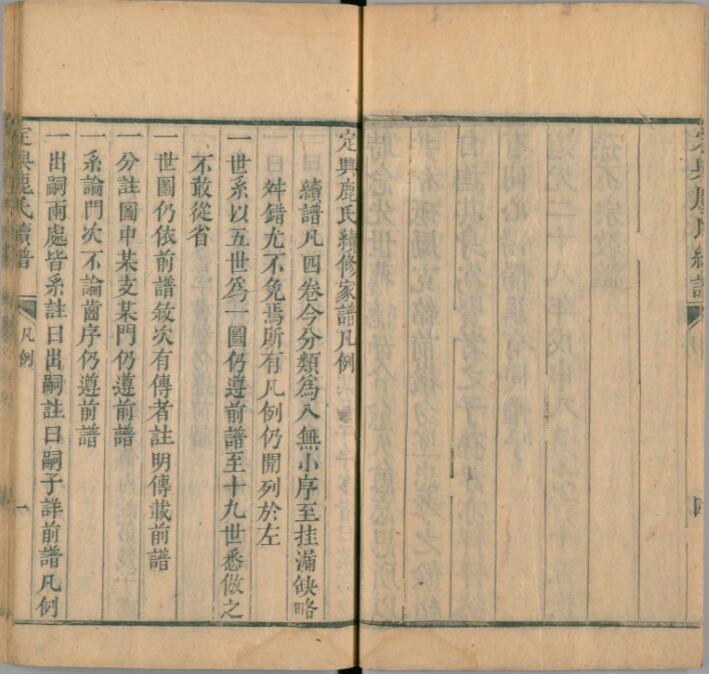 定興鹿氏續修家譜凡例
續譜凡四卷今分類爲八無小序至挂漏缺略
舛錯尤不免焉所有凡例仍開列於左
一世系以五世爲一圖仍遵前譜至十九世悉倣之
不敢從省
一世圖仍依前譜敘次有傳者註明傳載前譜
一分註圖中某支某門仍遵前譜
一系論門次不論齒序仍遵前譜
一出嗣兩處皆系註曰出嗣註曰嗣子詳前譜凡例
定興鹿氏續譜
凡例
一